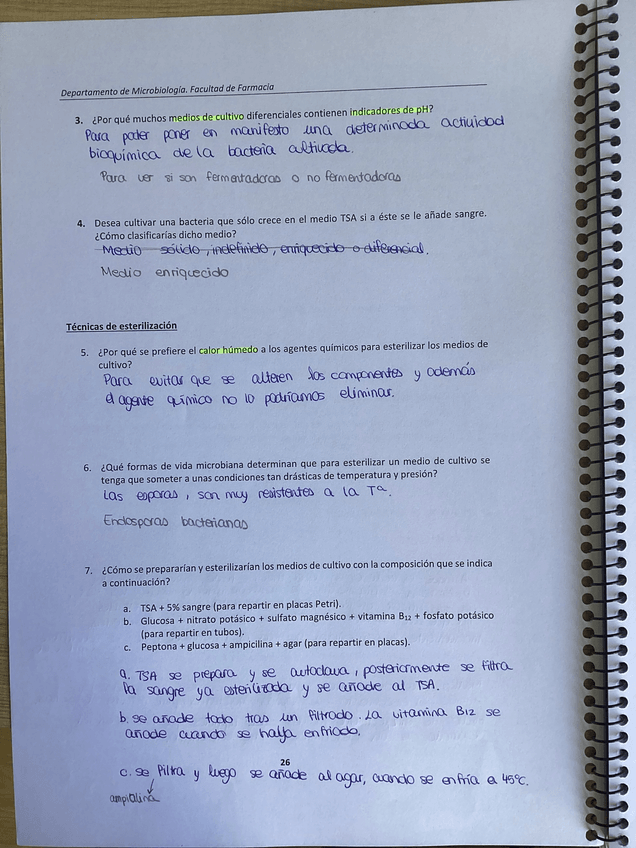 Departamento de Microbiología. Facultad de Farmacia
3. ¿Por qué muchos medios de cultivo diferenciales contienen indicadores de pH?
Para poder poner en manifesto una determinada actividad
bioquímica de la bacteria cultivada.
Para ver si son fermentadoras o no fermentadoras
4. Desea cultivar una bacteria que sólo crece en el medio TSA si a éste se le añade sangre.
¿Cómo clasificarías dicho medio?
Medio sólido, indefinido, enriquecido o diferencial.
Medio enriquecido
Técnicas de esterilización
5. ¿Por qué se prefiere el calor húmedo a los agentes químicos para esterilizar los medios de
cultivo?
Para evitar que se alteren los componentes y además
el agente químico no lo podríamos eliminar.
6. ¿Qué formas de vida microbiana determinan que para esterilizar un medio de cultivo se
tenga que someter a unas condiciones tan drásticas de temperatura y presión?
Las esporas, son muy resistentes a la Tª.
Endosporas bacterianas
7. ¿Cómo se prepararían y esterilizarían los medios de cultivo con la composición que se indica
a continuación?
a. TSA + 5% sangre (para repartir en placas Petri).
b. Glucosa + nitrato potásico + sulfato magnésico + vitamina B12 + fosfato potásico
(para repartir en tubos).
c. Peptona + glucosa + ampicilina + agar (para repartir en placas).
a. TSA se prepara y se autoclava, posteriormente se filtra
la sangre ya esterilizada y se añade al TSA.
b. se añade todo tras un filtrado. La vitamina B12 se
añade cuando se halla enfriado.
26
c. se filtra y luego se añade al agar, cuando se enfría a 45ºC.
ampicilina